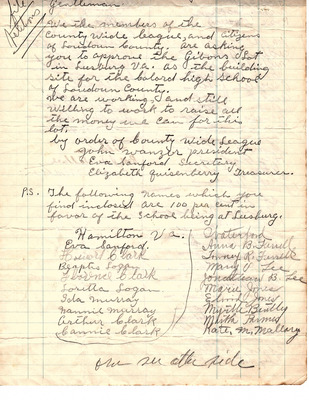 file
Petitions
Gentleman
We the members of the
County Wide league, and citizens
of Loudoun County, are asking
you to approve the Gibons Lot
in Lursburg Va. as the building
site for the Colord high School
of Loudoun County.
We are working, and still
willing to work to raise all
the money we can for this
lot.
by order of County Wide League
John Wanzer president
Eva Sanford Secretary
Elizabeth Quisenberry Treasurer.
P.S. The following names which you
find inclosed are 100 per cent in
favor of the School being at Leesburg.
Hamilton Va.
Eva Sanford.
Clark
Logan
Clark
Loretta Logan
Ida Murray
Nannie Murray
Arthur Clark
Cannie Clark
Waterford
Anna B. Furr
R. Furr
Mary V. Lee
Jonathean B. Lee
Marie Jones
Elmo Jones
Myrtle Bently
Furmes
Kate M. Mallory
over see other side